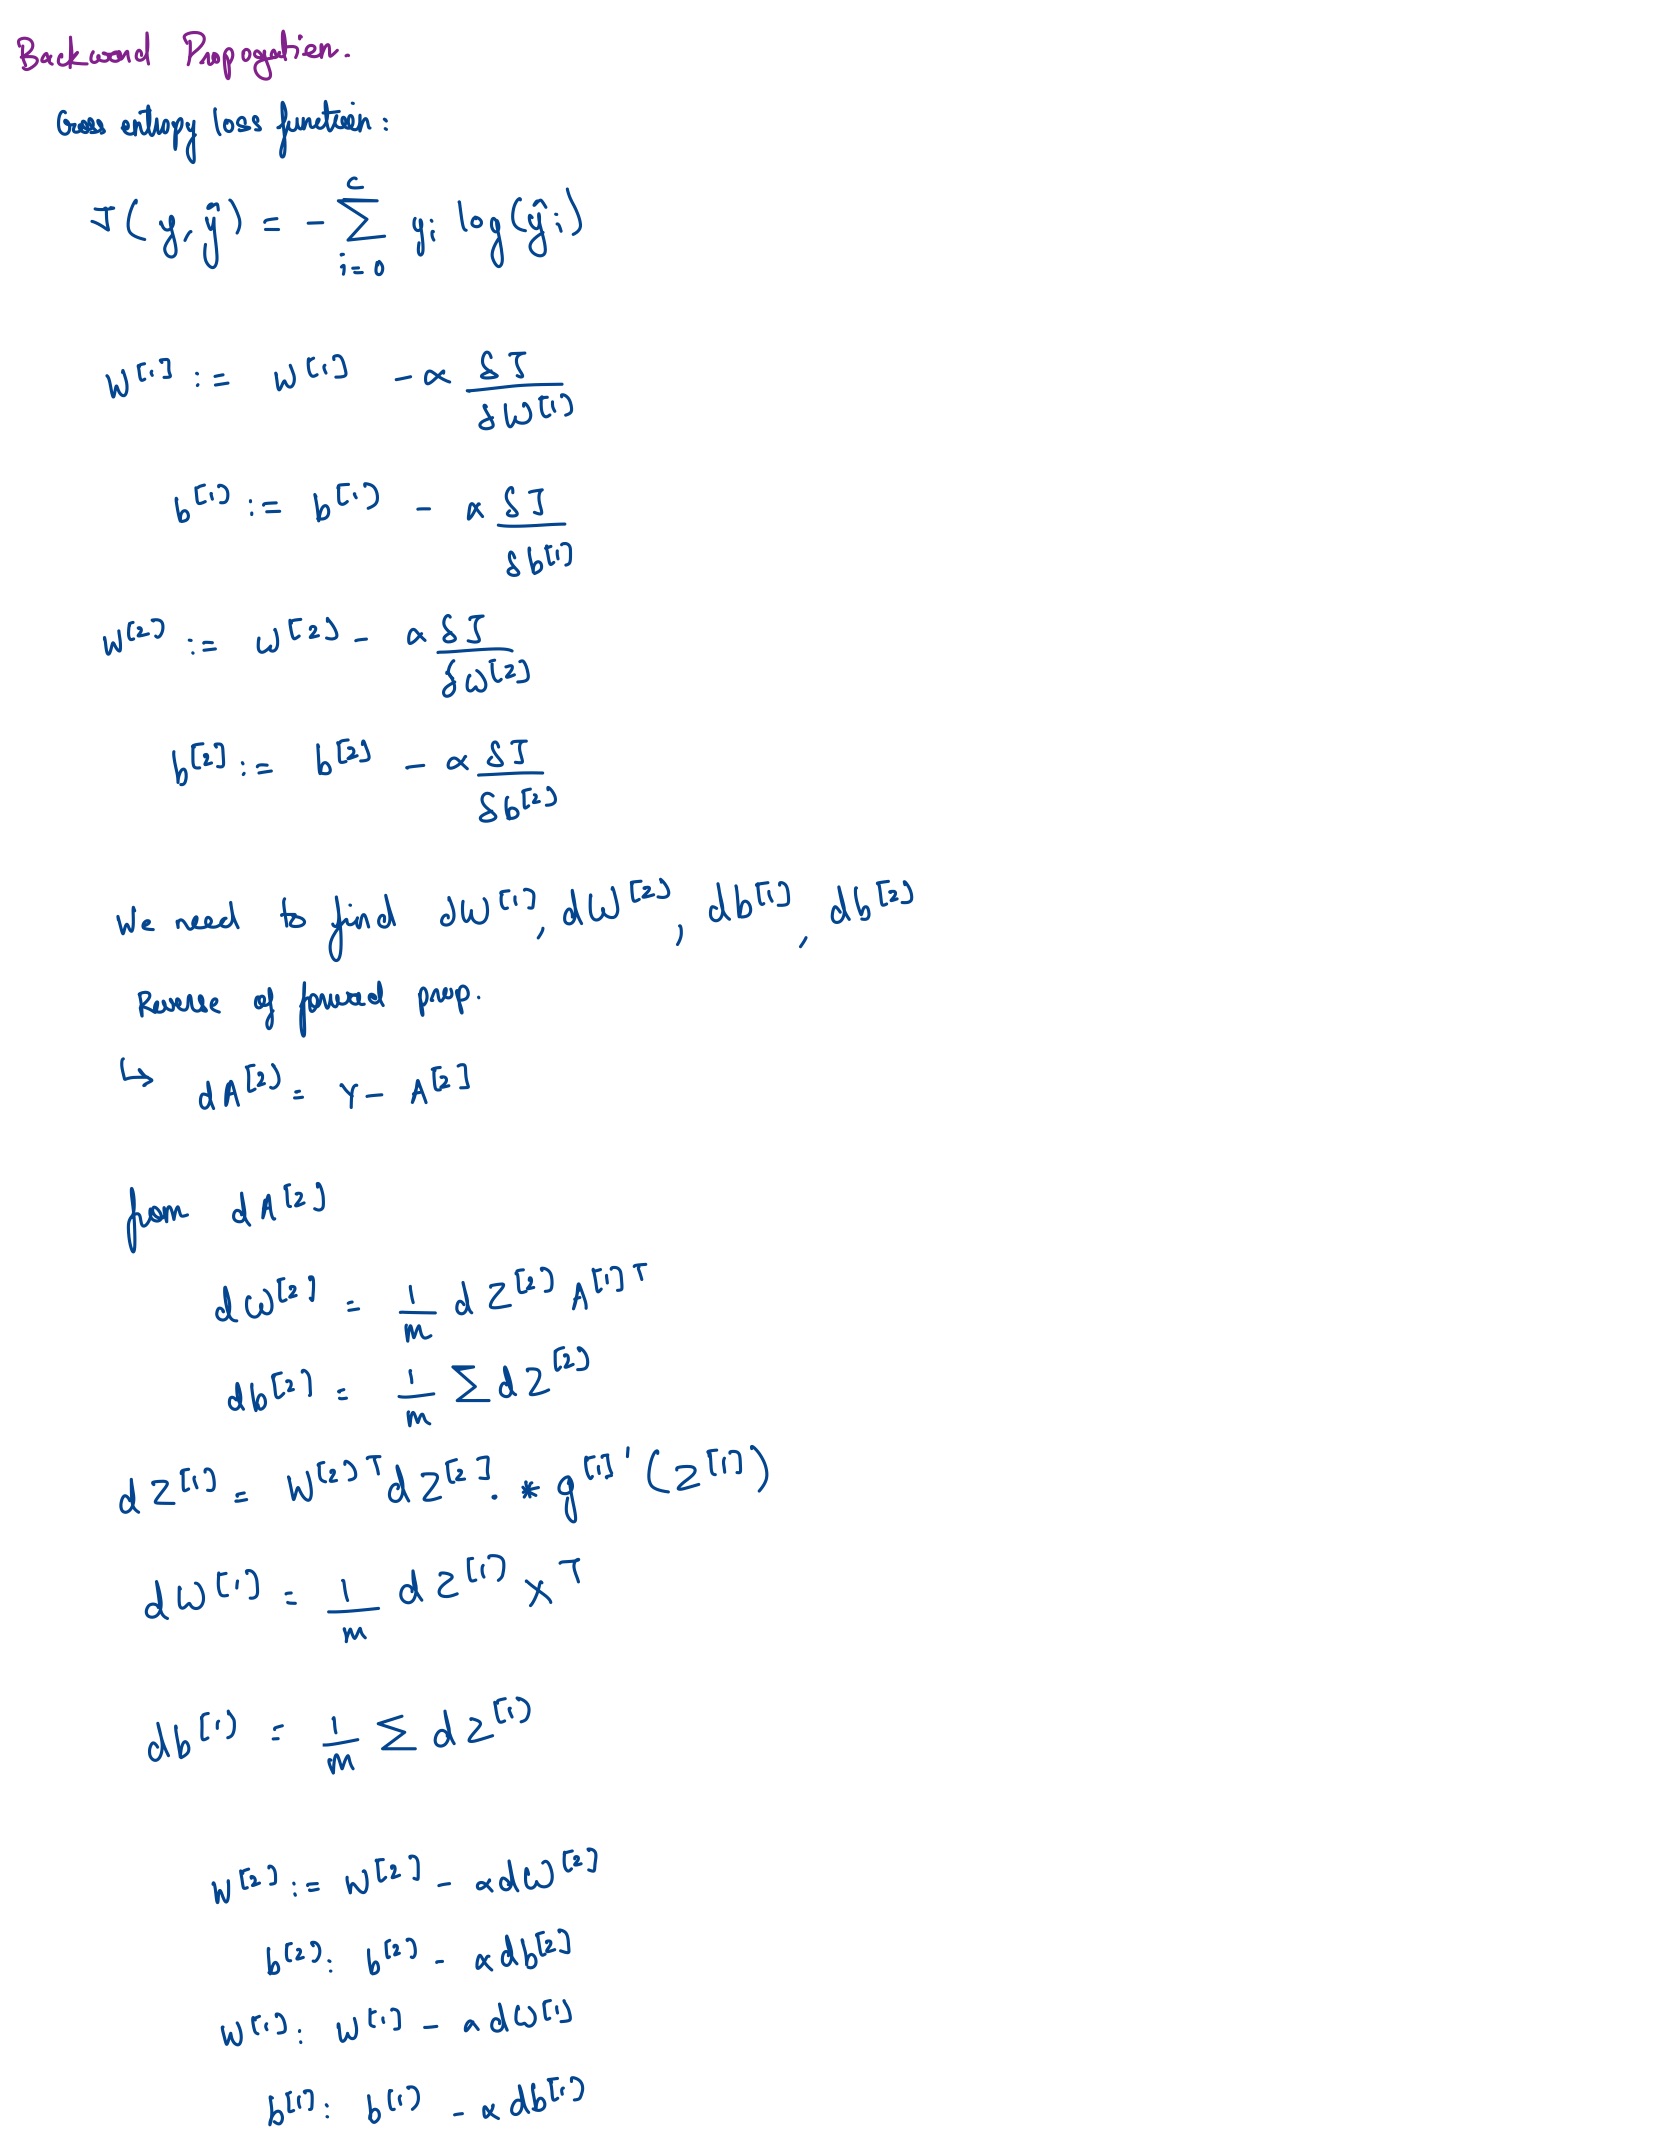 Backward Propogation.
Cross entropy loss function:
J(y, ŷ) = - ∑_{i=0}^{c} y_i log(ŷ_i)
W^[1] := W^[1] - α δJ/δW^[1]
b^[1] := b^[1] - α δJ/δb^[1]
W^[2] := W^[2] - α δJ/δW^[2]
b^[2] := b^[2] - α δJ/δb^[2]
We need to find dW^[1], dW^[2], db^[1], db^[2]
Reverse of forward prop.
↳ dA^[2] = Y - A^[2]
from dA^[2]
dW^[2] = 1/m dZ^[2] A^[1]T
db^[2] = 1/m ∑ dZ^[2]
dZ^[1] = W^[2]T dZ^[2] .* g^[1]'(Z^[1])
dW^[1] = 1/m dZ^[1] X^T
db^[1] = 1/m ∑ dZ^[1]
W^[2] := W^[2] - αdW^[2]
b^[2]: b^[2] - αdb^[2]
W^[1]: W^[1] - αdW^[1]
b^[1]: b^[1] - αdb^[1]